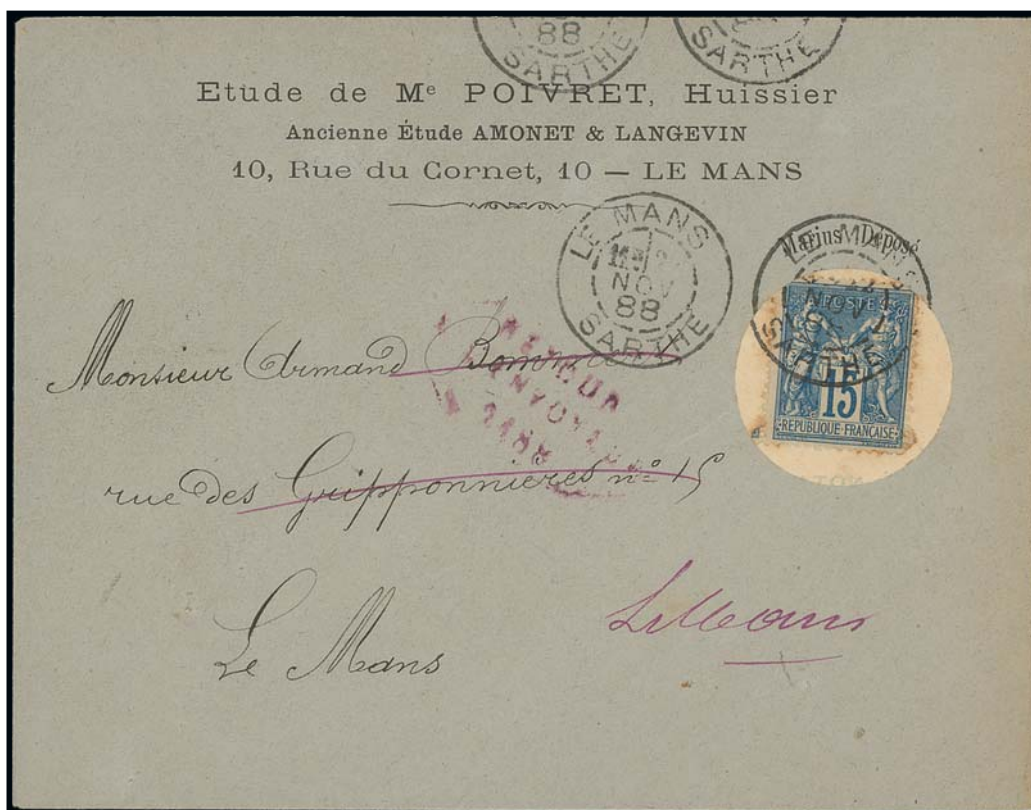 88
SARTHE
SARTHE
Etude de Mᵉ POIVRET, Huissier
Ancienne Étude AMONET & LANGEVIN
10, Rue du Cornet, 10 — LE MANS
LE MANS
NOV
88
SARTHE
Marius Déposé
LE MANS
SARTHE
15
REPUBLIQUE FRANÇAISE
RETOUR
A L'ENVOYEUR
2188
Monsieur Armand
rue des Gripponnières nº 15
Le Mans
Le Mans